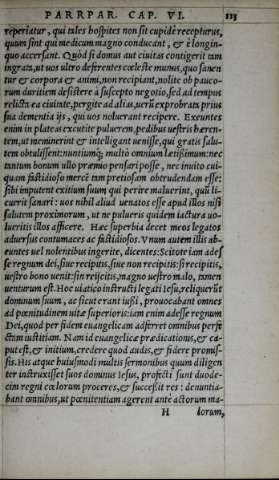 PARRPAR. CAP. VI. 113
reperiatur, qui tales hospites non sit cupidè recepturus,
quum sint qui medicum magno conducant, & è longin-
quo accersant. Quòd si domus aut ciuitas contigerit tam
ingrata, ut uos ultro deferentes cœleste munus, quo sanen
tur & corpora & animi, non recipiant, nolite ob pauco-
rum duritiem desistere à suscepto negotio, sed ad tempus
relicta ea ciuitate, pergite ad alias, uerũ exprobrata prius
sua dementia ijs, qui uos noluerant recipere. Exeuntes
enim in plateas excutite puluerem, pedibus uestris hæren-
tem, ut meminerint & intelligant uenisse, qui gratis salu-
tem obtulissent: nuntiumq; multò omnium lætissimum: nec
tantum bonum ullo præmio pensari posse, nec inuito cui-
quam fastidioso mercē tam pretiosam obtrudendam esse:
sibi imputent exitium suum qui perire maluerint, quũ li-
cuerit sanari: uos nihil aliud uenatos esse apud illos nisi
salutem proximorum, ut ne pulueris quidem iactura uo-
lueritis illos afficere. Hæc superbia decet meos legatos
aduersus contumaces ac fastidiosos. Vnum autem illis ab-
euntes uel nolentibus ingerite, dicentes: Scitote iam ades
se regnum dei, siue recipitis, siue non recipitis: si recipitis,
uestro bono uenit: sin reijcitis, magno uestro malo, tamen
uenturum est. Hoc uiatico instructi legati Iesu, reliquerũt
dominum suum, ac sicut erant iussi, prouocabant omnes
ad pœnitudinem uitæ superioris: iam enim adesse regnum
Dei, quod per fidem euangelicam adferret omnibus perfe
ctam iustitiam. Nam id euangelicæ prædicationis, & ca-
put est, & initium, credere quod audis, & fidere promis-
sis. His atque huiusmodi multis sermonibus quum diligen
ter instruxisset suos dominus Iesus, profecti sunt duode-
cim regni cœlorum proceres, & successit res: denuntia-
bant omnibus, ut pœnitentiam agerent antè actorum ma-
H lorum,